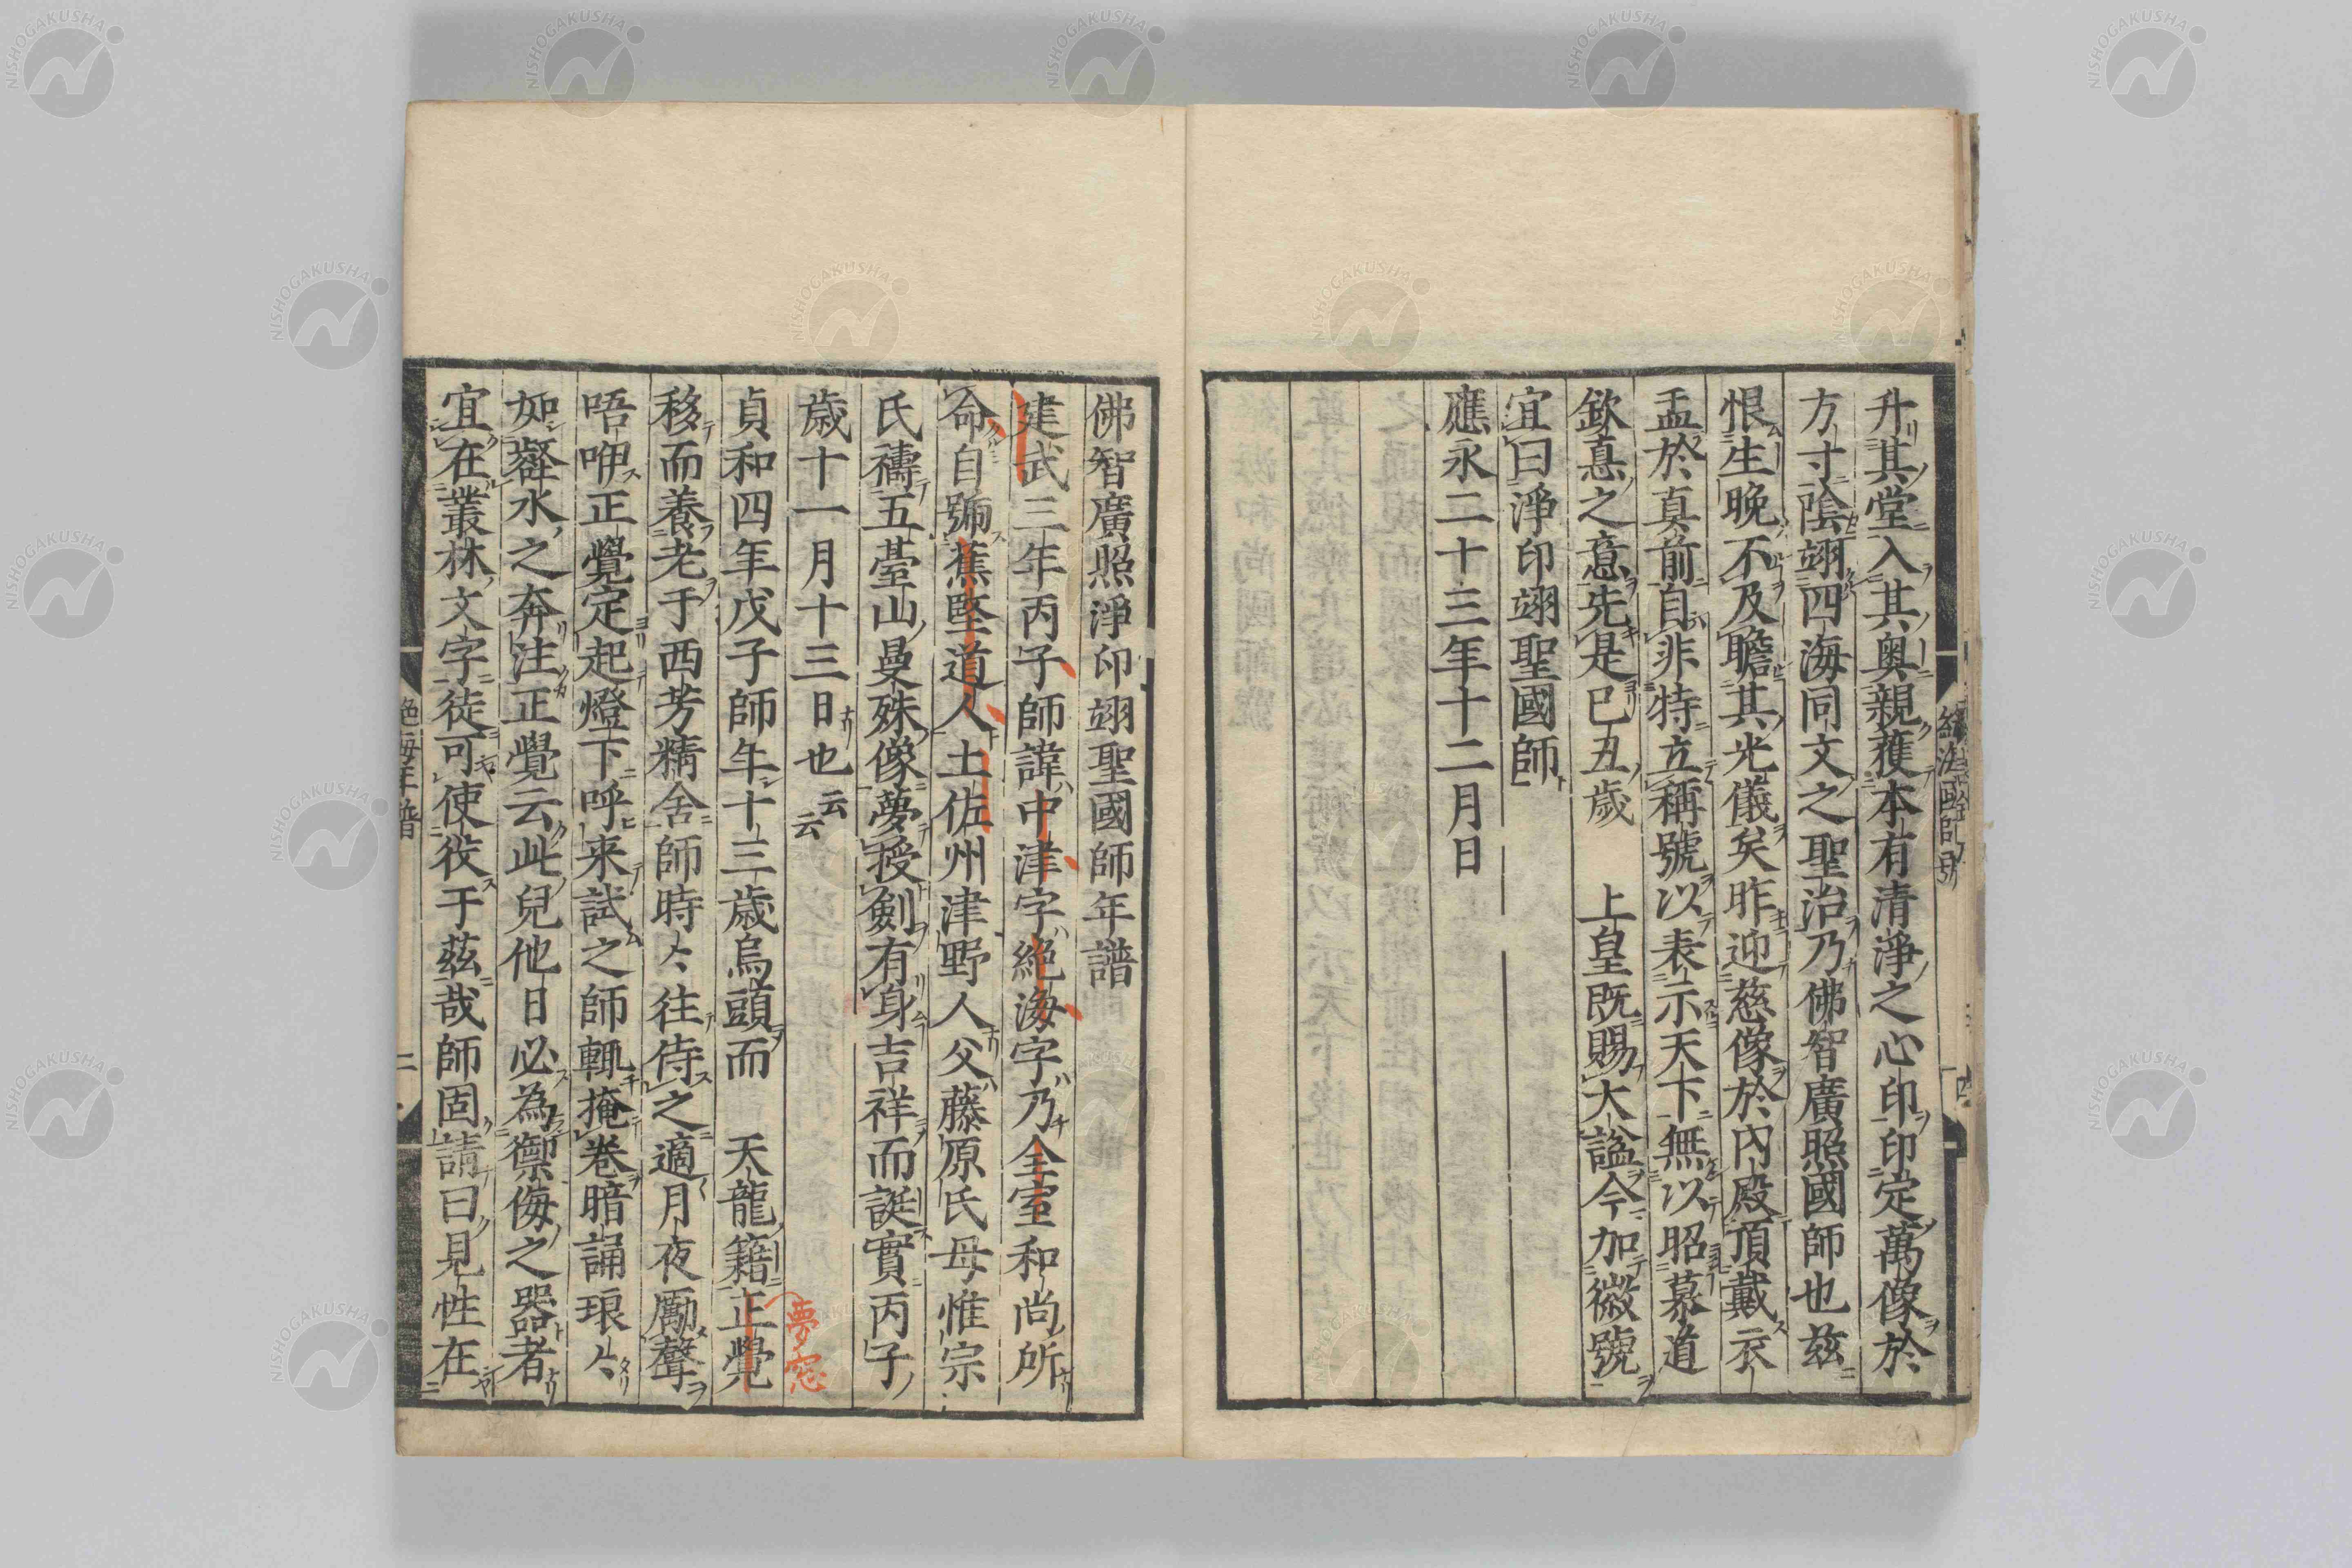 升其堂入其奥親獲本有清淨之心印印定萬像於
方寸陰翊四海同文之聖治乃佛智廣照國師也茲
恨生晚不及瞻其光儀矣昨迎慈像於內殿頂戴衣
盂於真前自非特立稱號以表示天下無以昭慕道
欽悳之意先是已丑歲 上皇既賜大謚今加徽號
宜曰淨印翊聖國師
應永二十三年十二月日
佛智廣照淨印翊聖國師年譜
建武三年丙子師諱中津字絶海字乃全室和尚所
命自號蕉堅道人土佐州津野人父藤原氏母惟宗
氏禱五臺山曼殊像夢授劍有身吉祥而誕實丙子
歲十一月十三日也云云
貞和四年戊子師年十三歲烏頭而 天龍籍正覺
夢窓
移而養老于西芳精舍師時々往侍之適月夜勵聲
唔咿正覺定起燈下呼来試之師輒掩卷暗誦琅々
如壑水之奔注正覺云此兒他日必為禦侮之器者
宜在叢林文字徒可使役于茲哉師固請曰見性在
絶海年譜
二
NISHOGAKUSHA